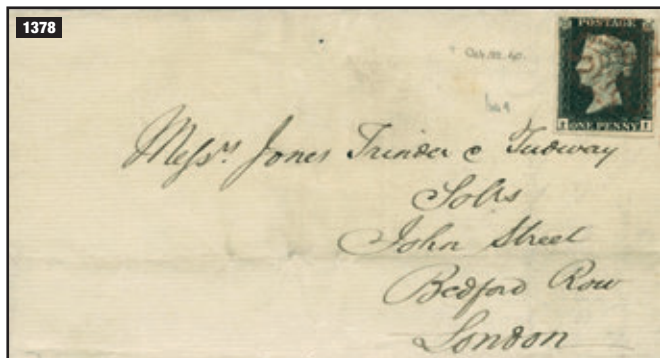 1378
POSTAGE
ONE PENNY
Messrs Jones Trinder & Tudway
Solrs
John Street
Bedford Row
London